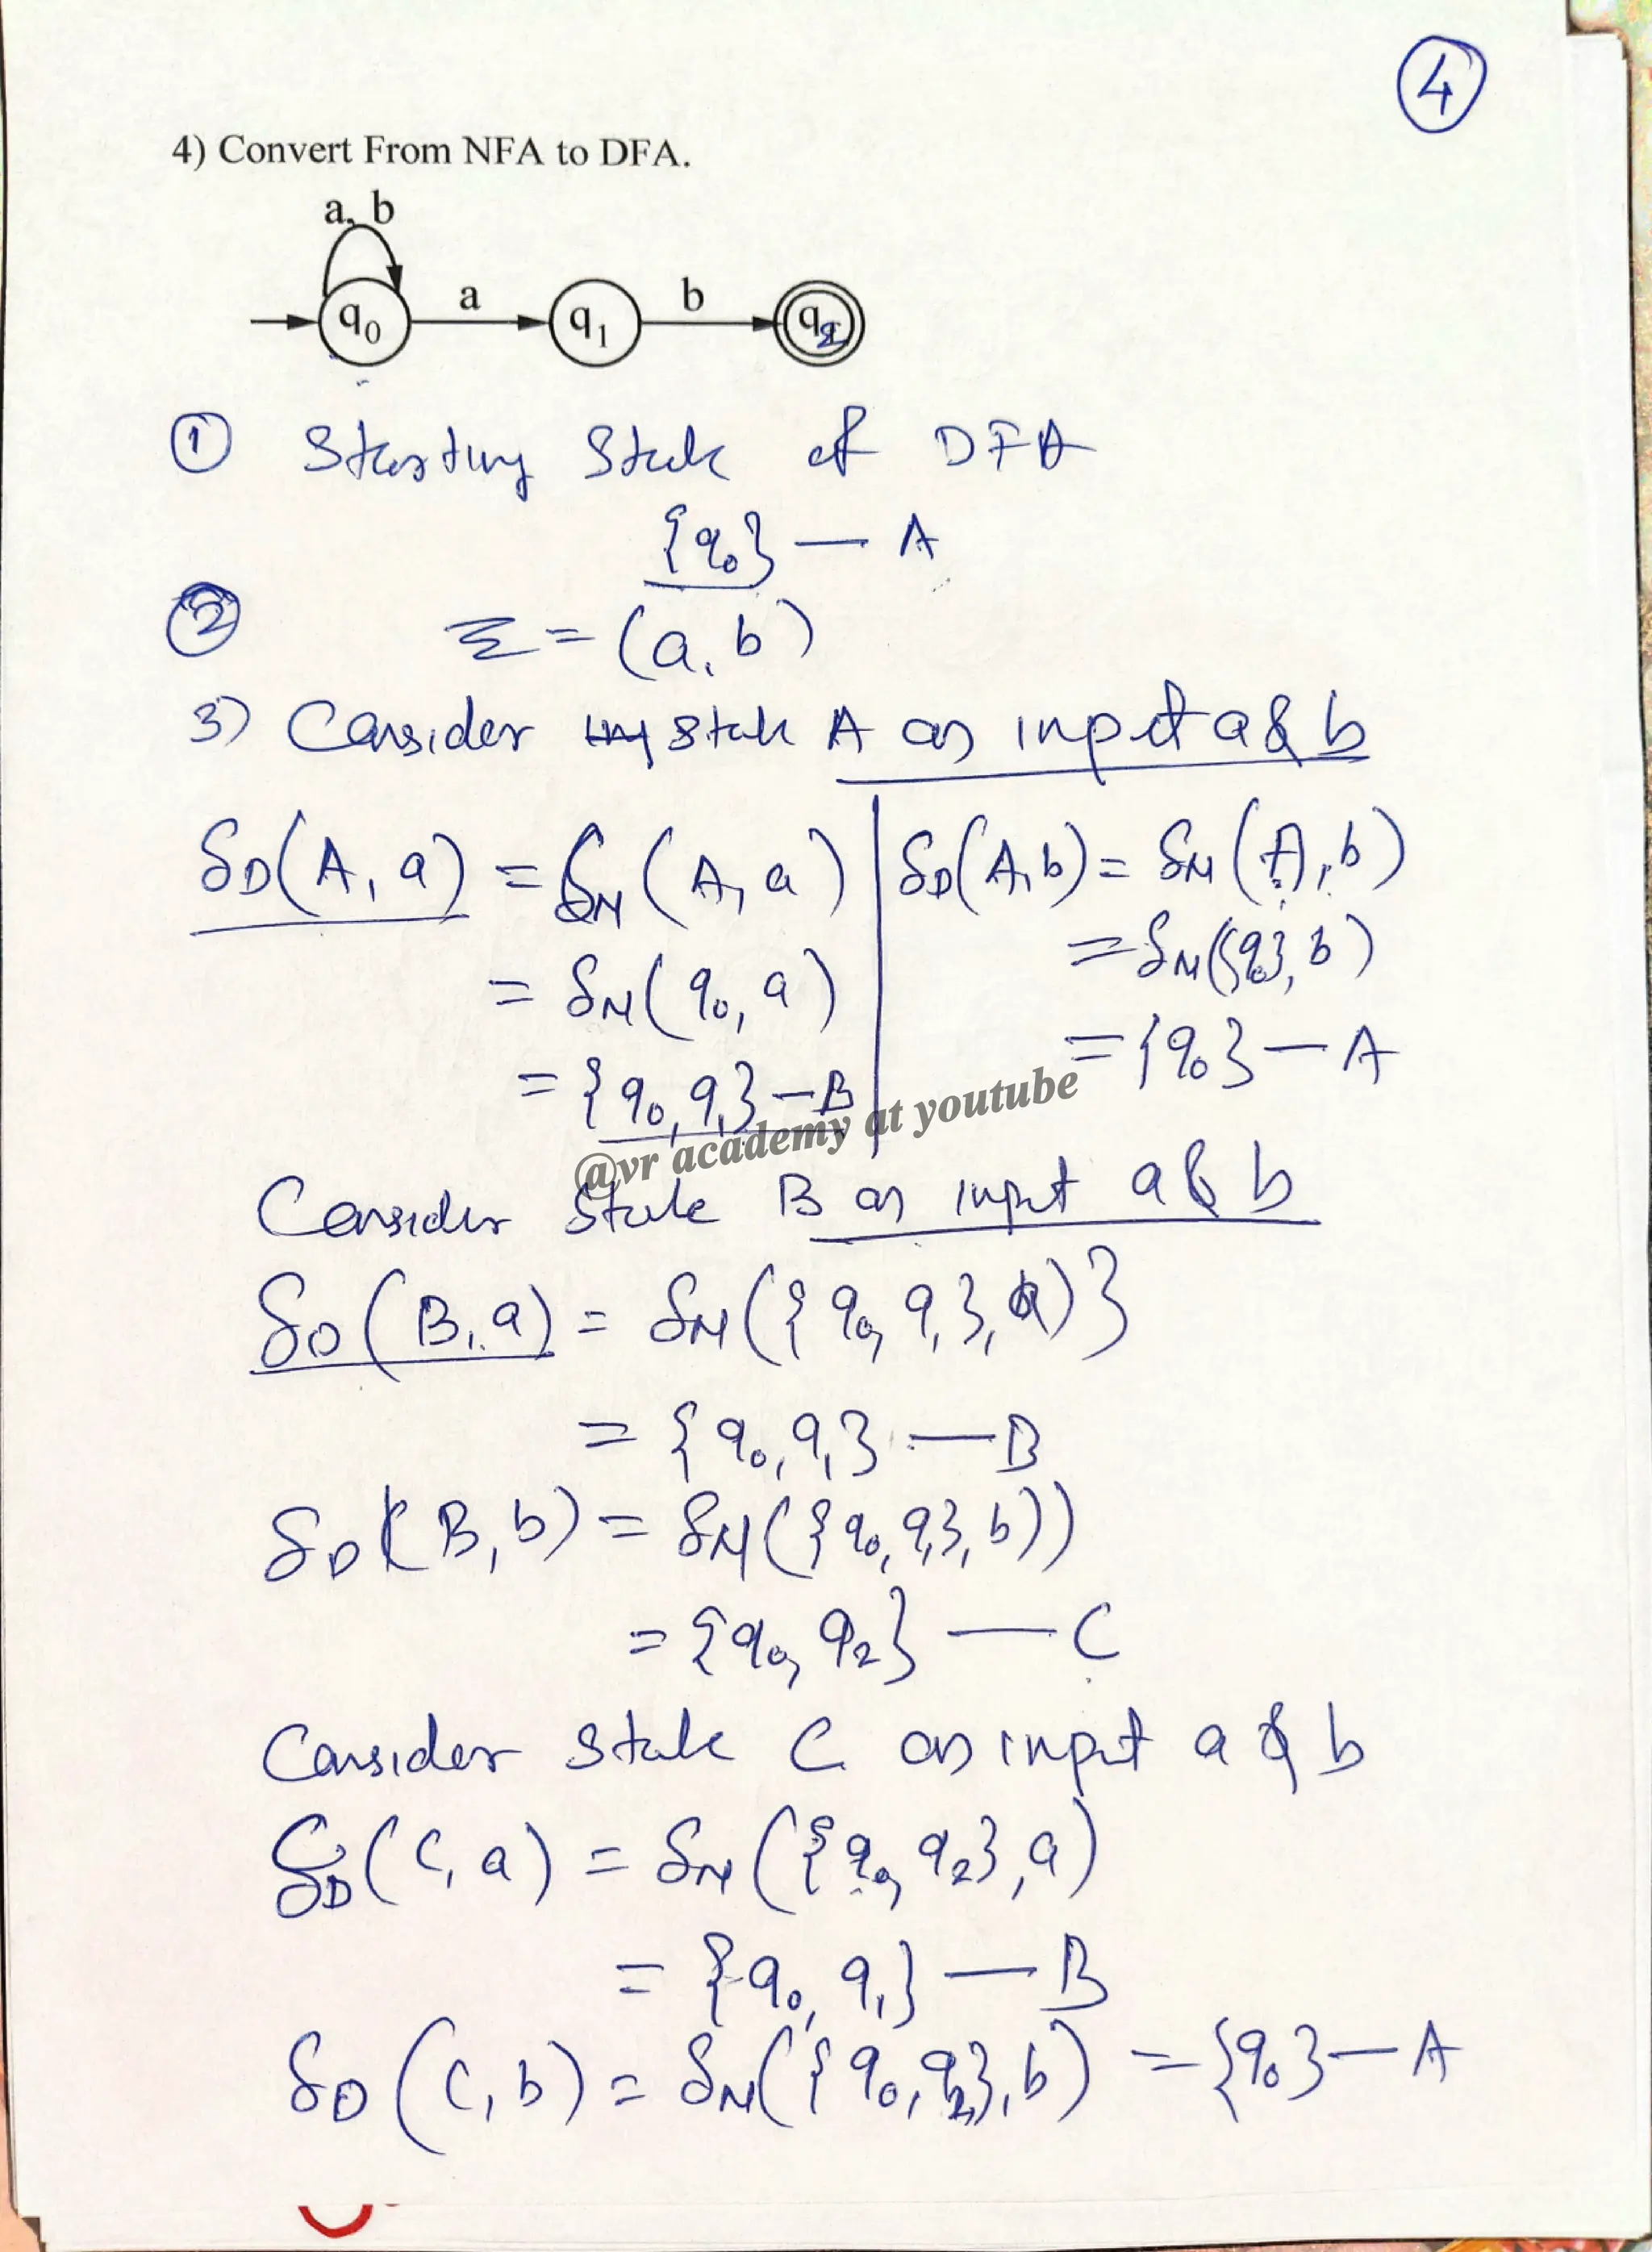 4
4) Convert From NFA to DFA.
a, b
a
b
q0
q1
q2
① Starting State of DFA
{q0} — A
② Σ = (a, b)
3) Consider state A on input a & b
δD(A, a) = δN(A, a)
= δN(q0, a)
= {q0, q1} — B
δD(A, b) = δN(A, b)
= δN({q0}, b)
= {q0} — A
@vr academy at youtube
Consider State B on input a & b
δD(B, a) = δN({q0, q1}, a)}
= {q0, q1} — B
δD(B, b) = δN({q0, q1}, b))
= {q0, q2} — C
Consider state C on input a & b
δD(C, a) = δN({q0, q2}, a)
= {q0, q1} — B
δD(C, b) = δN({q0, q2}, b) = {q0} — A